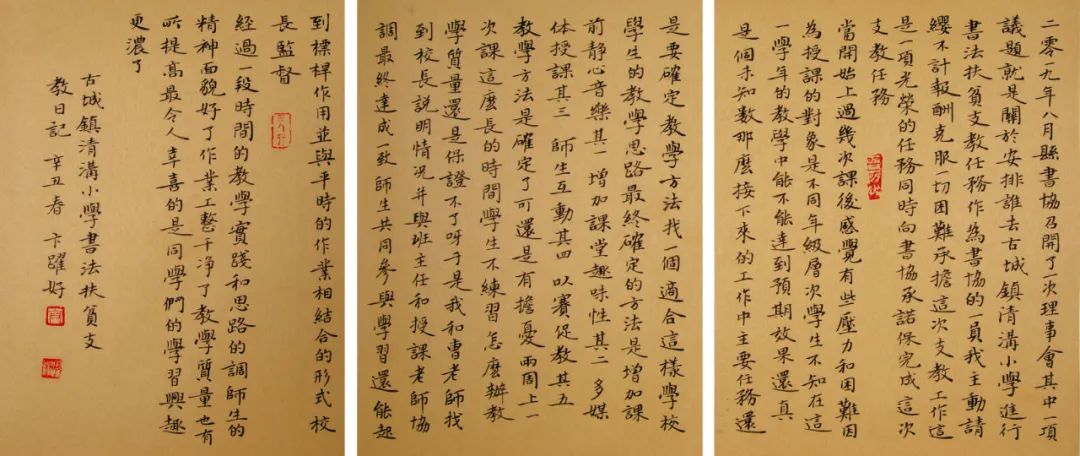 二零一九年八月縣書協召開了次理事會其中一項
議題就是關於安排誰去古城鎮清溝小學進行
書法扶貧支教任務作為書協的一員我主動請
纓不計報酬克服一切困難承擔這次支教工作這
是一項光榮的任務同時向書協承諾保完成這次
支教任務
當開始上過幾次課後感覺有些壓力和困難因
為授課的對象是不同年級層次學生不知在這
一學年的教學中能不能達到預期效果還真
是個未知數那麼接下來的工作中主要任務還
是要確定教學方法找一個適合這樣學校
學生的教學思路最終確定的方法是增加課
前靜心音樂其一增加課堂趣味性其二多媒
体授課其三師生互動其四以賽促教其五
教學方法是確定了可還是有擔憂兩周上一
次課這麼長的時間學生不練習怎麼辦教
學質量還是保證不了呀于是我和曹老師找
到校長説明情況并與班主任和授課老師協
調最終達成一致師生共同參與學習還能起
到標桿作用並與平時的作業相結合的形式校
長監督
經過一段時間的教學實踐和思路的調師生的
精神面貌好了作業工整干净了教學質量也有
所提高最令人喜喜的是同學們的學習興趣
更濃了
古城鎮清溝小學書法扶貧支
教日記 辛丑春 卞躍好